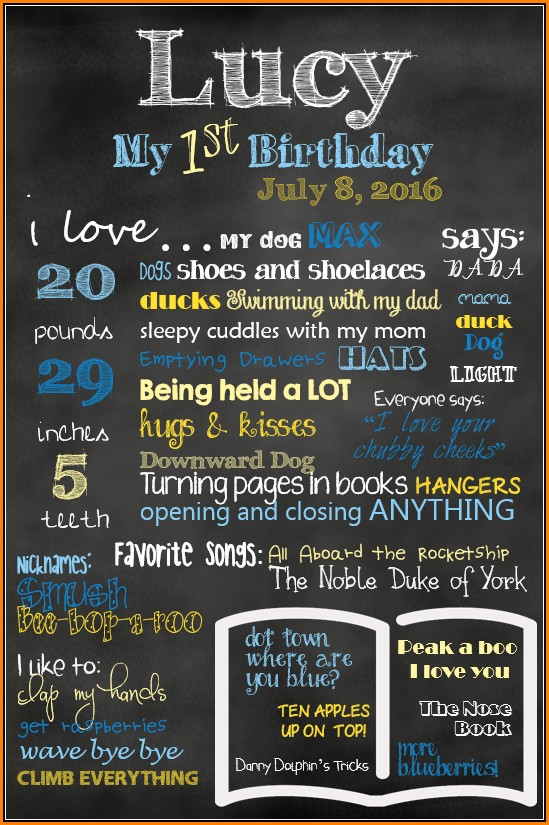 Lucy
My 1st Birthday
July 8, 2016
i love... my dog MAX
DOGS shoes and shoelaces
ducks Swimming with my dad
sleepy cuddles with my mom
Emptying Drawers HATS
Being held a LOT
hugs & kisses
Downward Dog
Turning pages in books HANGERS
opening and closing ANYTHING
20
pounds
29
inches
5
teeth
says:
DADA
mama
duck
Dog
LIGHT
Everyone says:
"I love your
chubby cheeks"
Nicknames:
Smush
Bee-bop-a-roo
Favorite Songs: All Aboard the Rocketship
The Noble Duke of York
I like to:
clap my hands
get raspberries
wave bye bye
CLIMB EVERYTHING
dot town
where are
you blue?
TEN APPLES
UP ON TOP!
Danny Dolphin's Tricks
Peak a boo
I love you
The Nose
Book
more
blueberries!